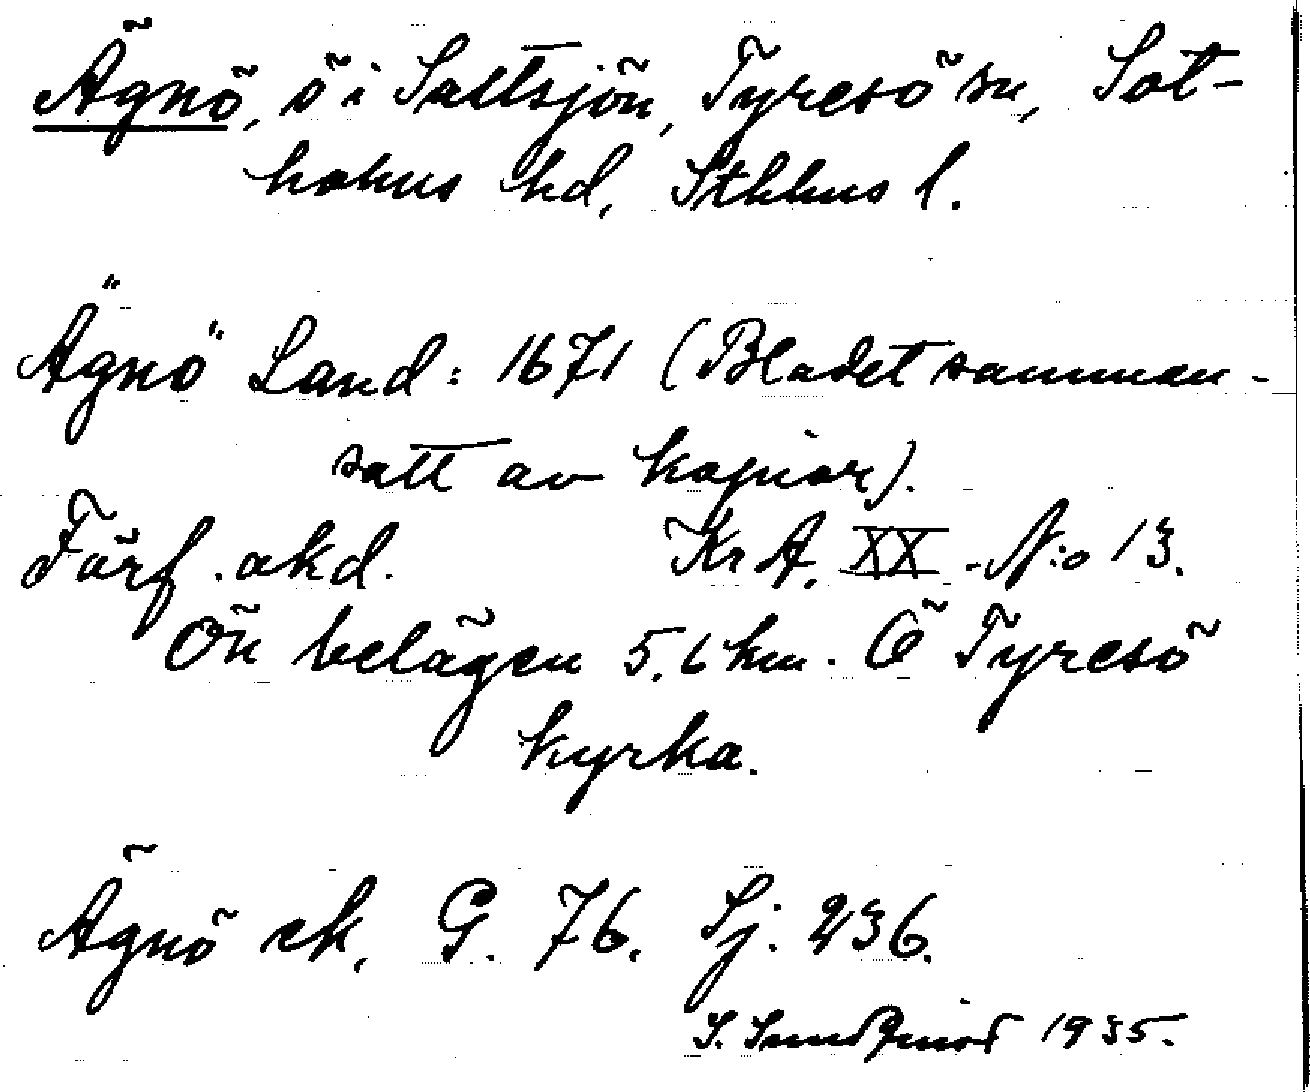 Ägnö, ö i Saltsjön, Tyresö sn, Sot-
holms hd, Sthlms l.
Ägnö Land: 1671 (Bladet samman-
satt av kopior).
Förf. okd. KrA. XX. N:o 13.
Ön belägen 5,6 km. Ö Tyresö
kyrka.
Ägnö ek, G. 76. Sj. 236.
S. Sundquist 1935.